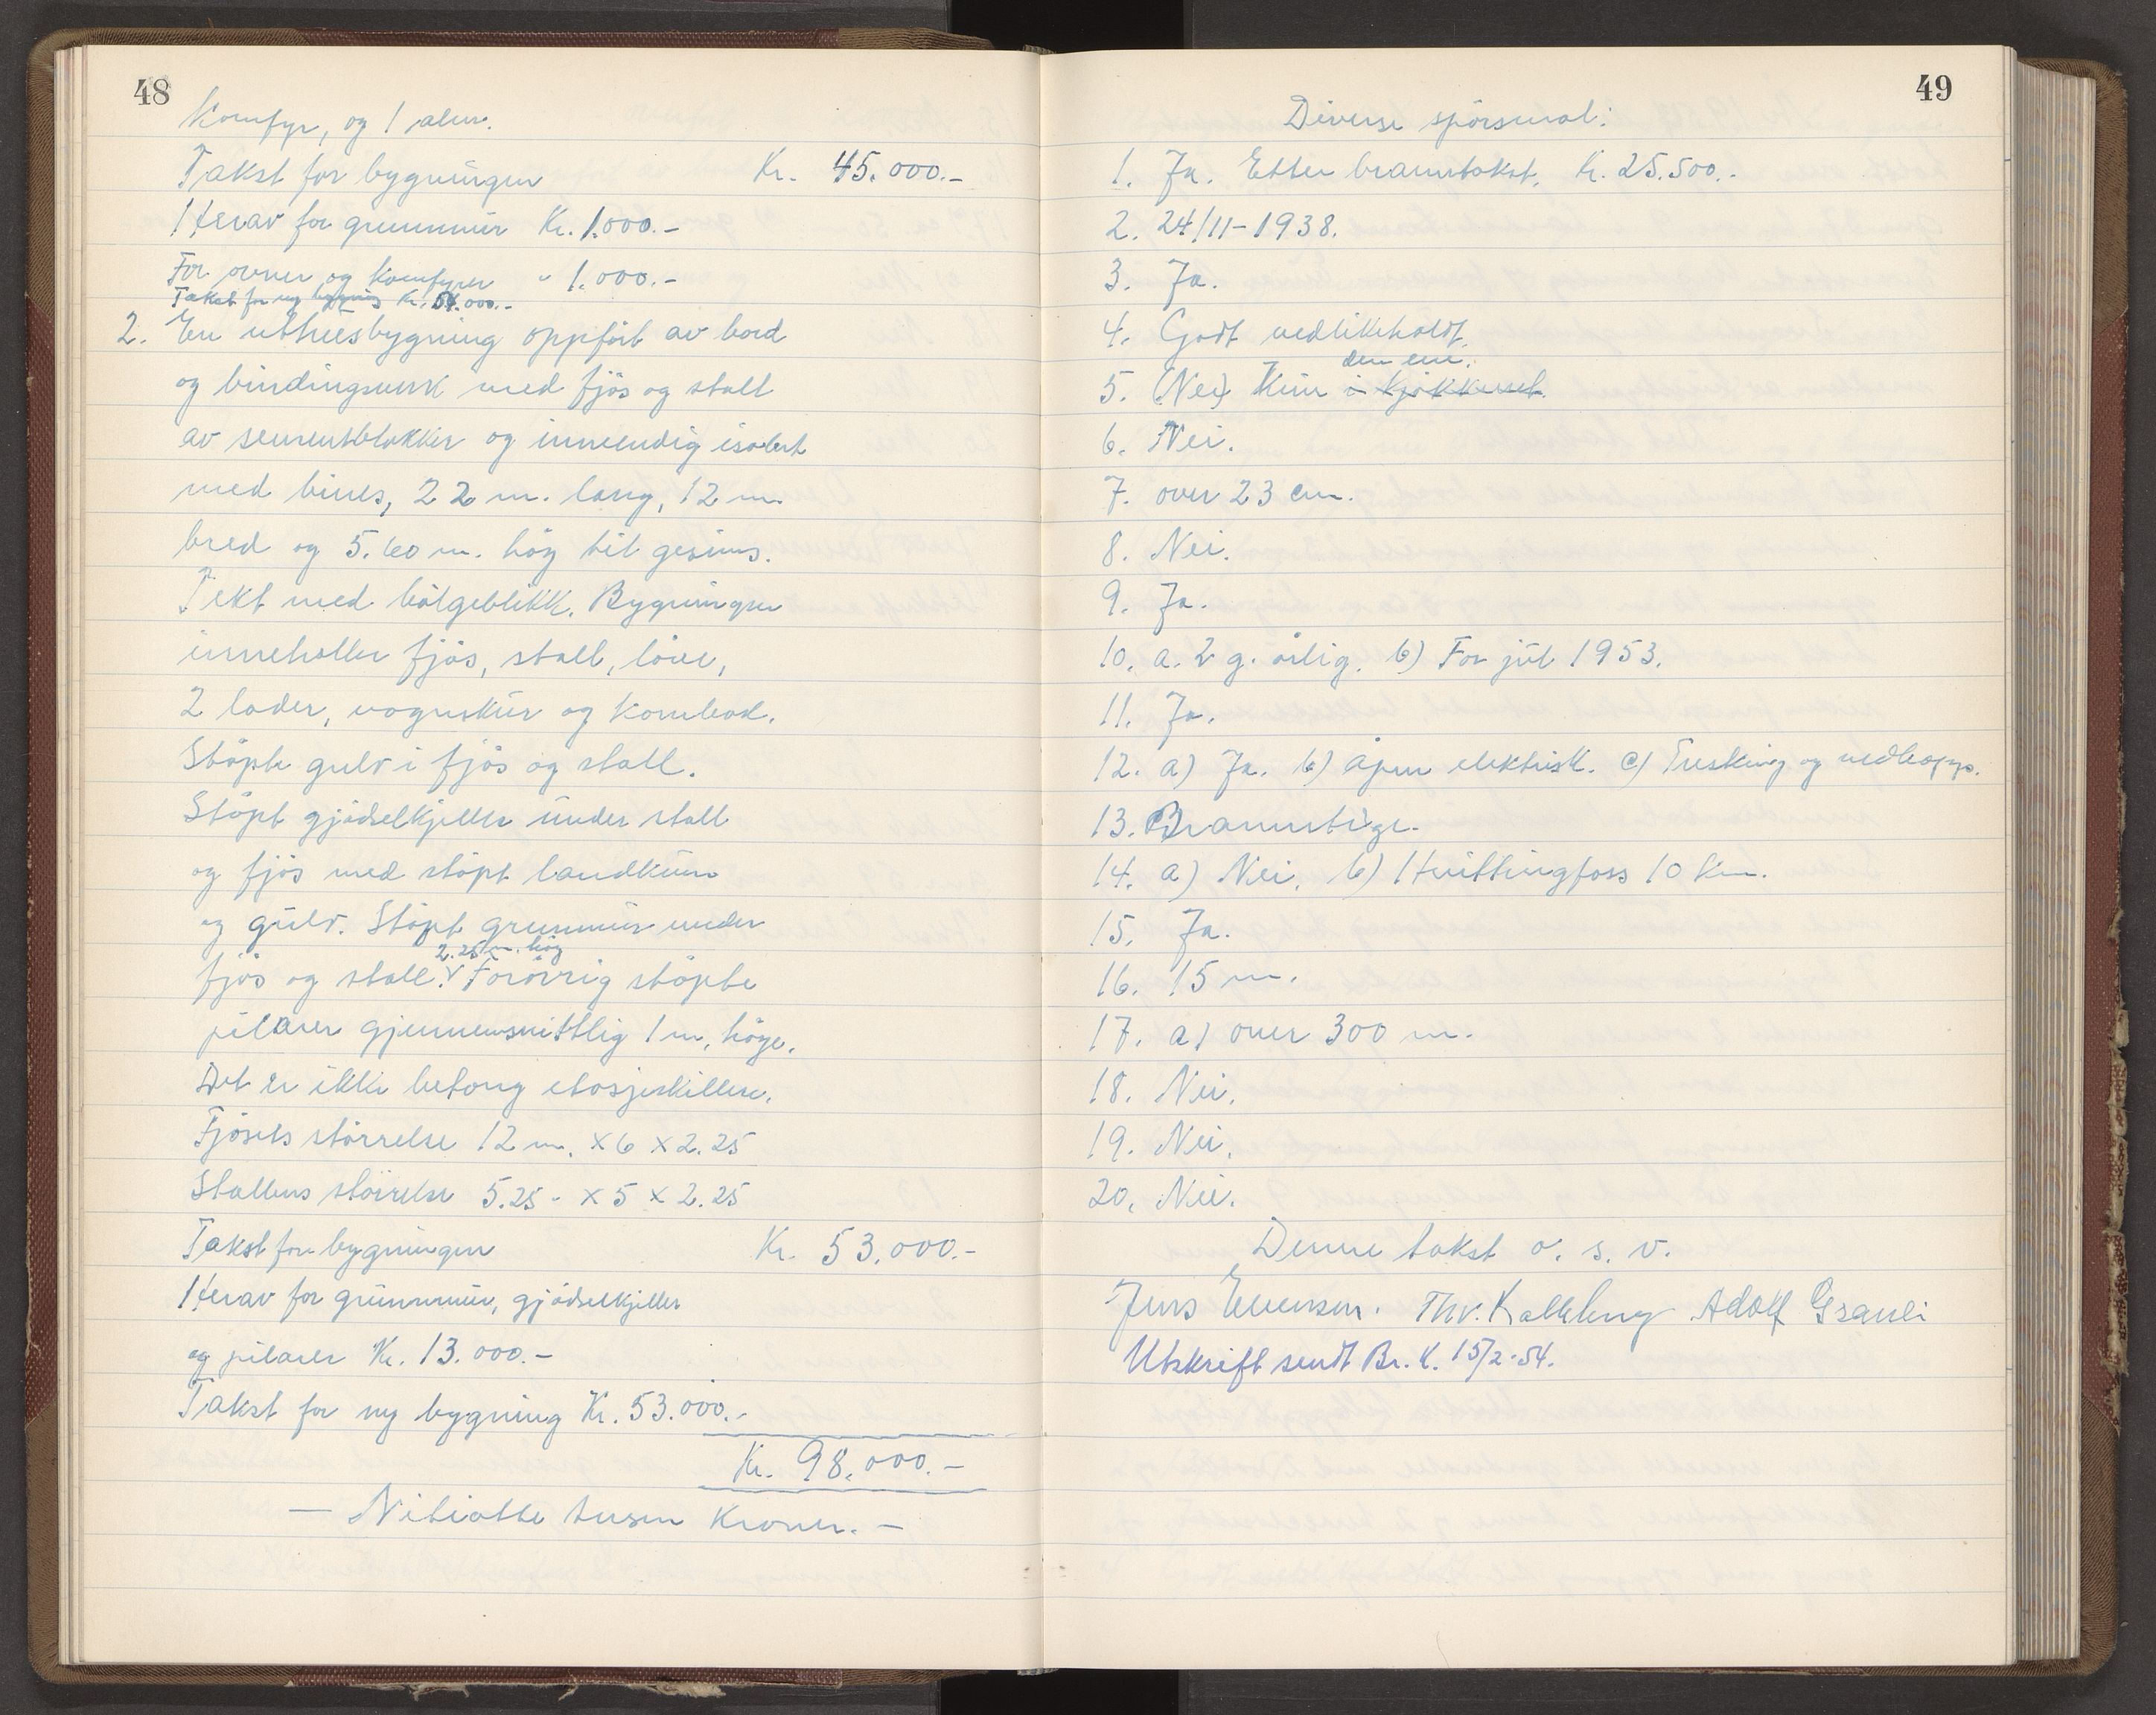 48
Komfyr, og 1 alm.
Takst for bygningen Kr. 45.000.-
Herav for grunnmur Kr. 1.000.-
For ovner og komfyrer " 1.000.-
Takst for ny bygning Kr. 54.000.-
2. En uthusbygning oppfört av bord
og bindingsverk med fjös og stall
av sementblokker og innvendig isolert
med bines, 22 m. lang, 12 m.
bred og 5.60 m. hög til gesims.
Tekt med bölgeblikk. Bygningen
inneholder fjös, stall, löve,
2 lader, vognskur og kornbod.
Stöpte gulv i fjös og stall.
Stöpt gjödselkjeller under stall
og fjös med stöpt landkum
og gulv. Stöpt grunnmur under
2.25 m. hög
fjös og stall. v Forövrig stöpte
pilarer gjennemsnittlig 1 m. höge.
Det er ikke betong etasjeskillere.
Fjösets störrelse 12 m. x 6 x 2.25
Stallens störrelse 5.25 - x 5 x 2.25
Takst for bygningen Kr. 53.000.-
Herav for grunnmur, gjödselkjeller
og pilarer Kr. 13.000.-
Takst for ny bygning Kr. 53.000.-
Kr. 98.000.-
- Nitiotte tusen kroner. -
49
Diverse spörsmal:
1. Ja. Etter branntakst. Kr. 25.500.-
2. 24/11-1938.
3. Ja.
4. Godt vedlikeholdt.
den ene.
5. (Nei) Kun i kjökkenet.
6. Nei.
7. over 23 cm.
8. Nei.
9. Ja.
10. a. 2 g. årlig. b) For jul 1953.
11. Ja.
12. a) Ja. b) åpen elektrisk. c) Tresking og vedkapp.
13. Brannstige.
14. a) Nei. b) Hvittingfoss 10 km.
15. Ja.
16. 15 m.
17. a) over 300 m.
18. Nei.
19. Nei.
20. Nei.
Denne takst o. s. v.
Jens Evensen. Thv. Kallberg Adolf Granli
Utskrift sendt Br. K. 15/2-54.